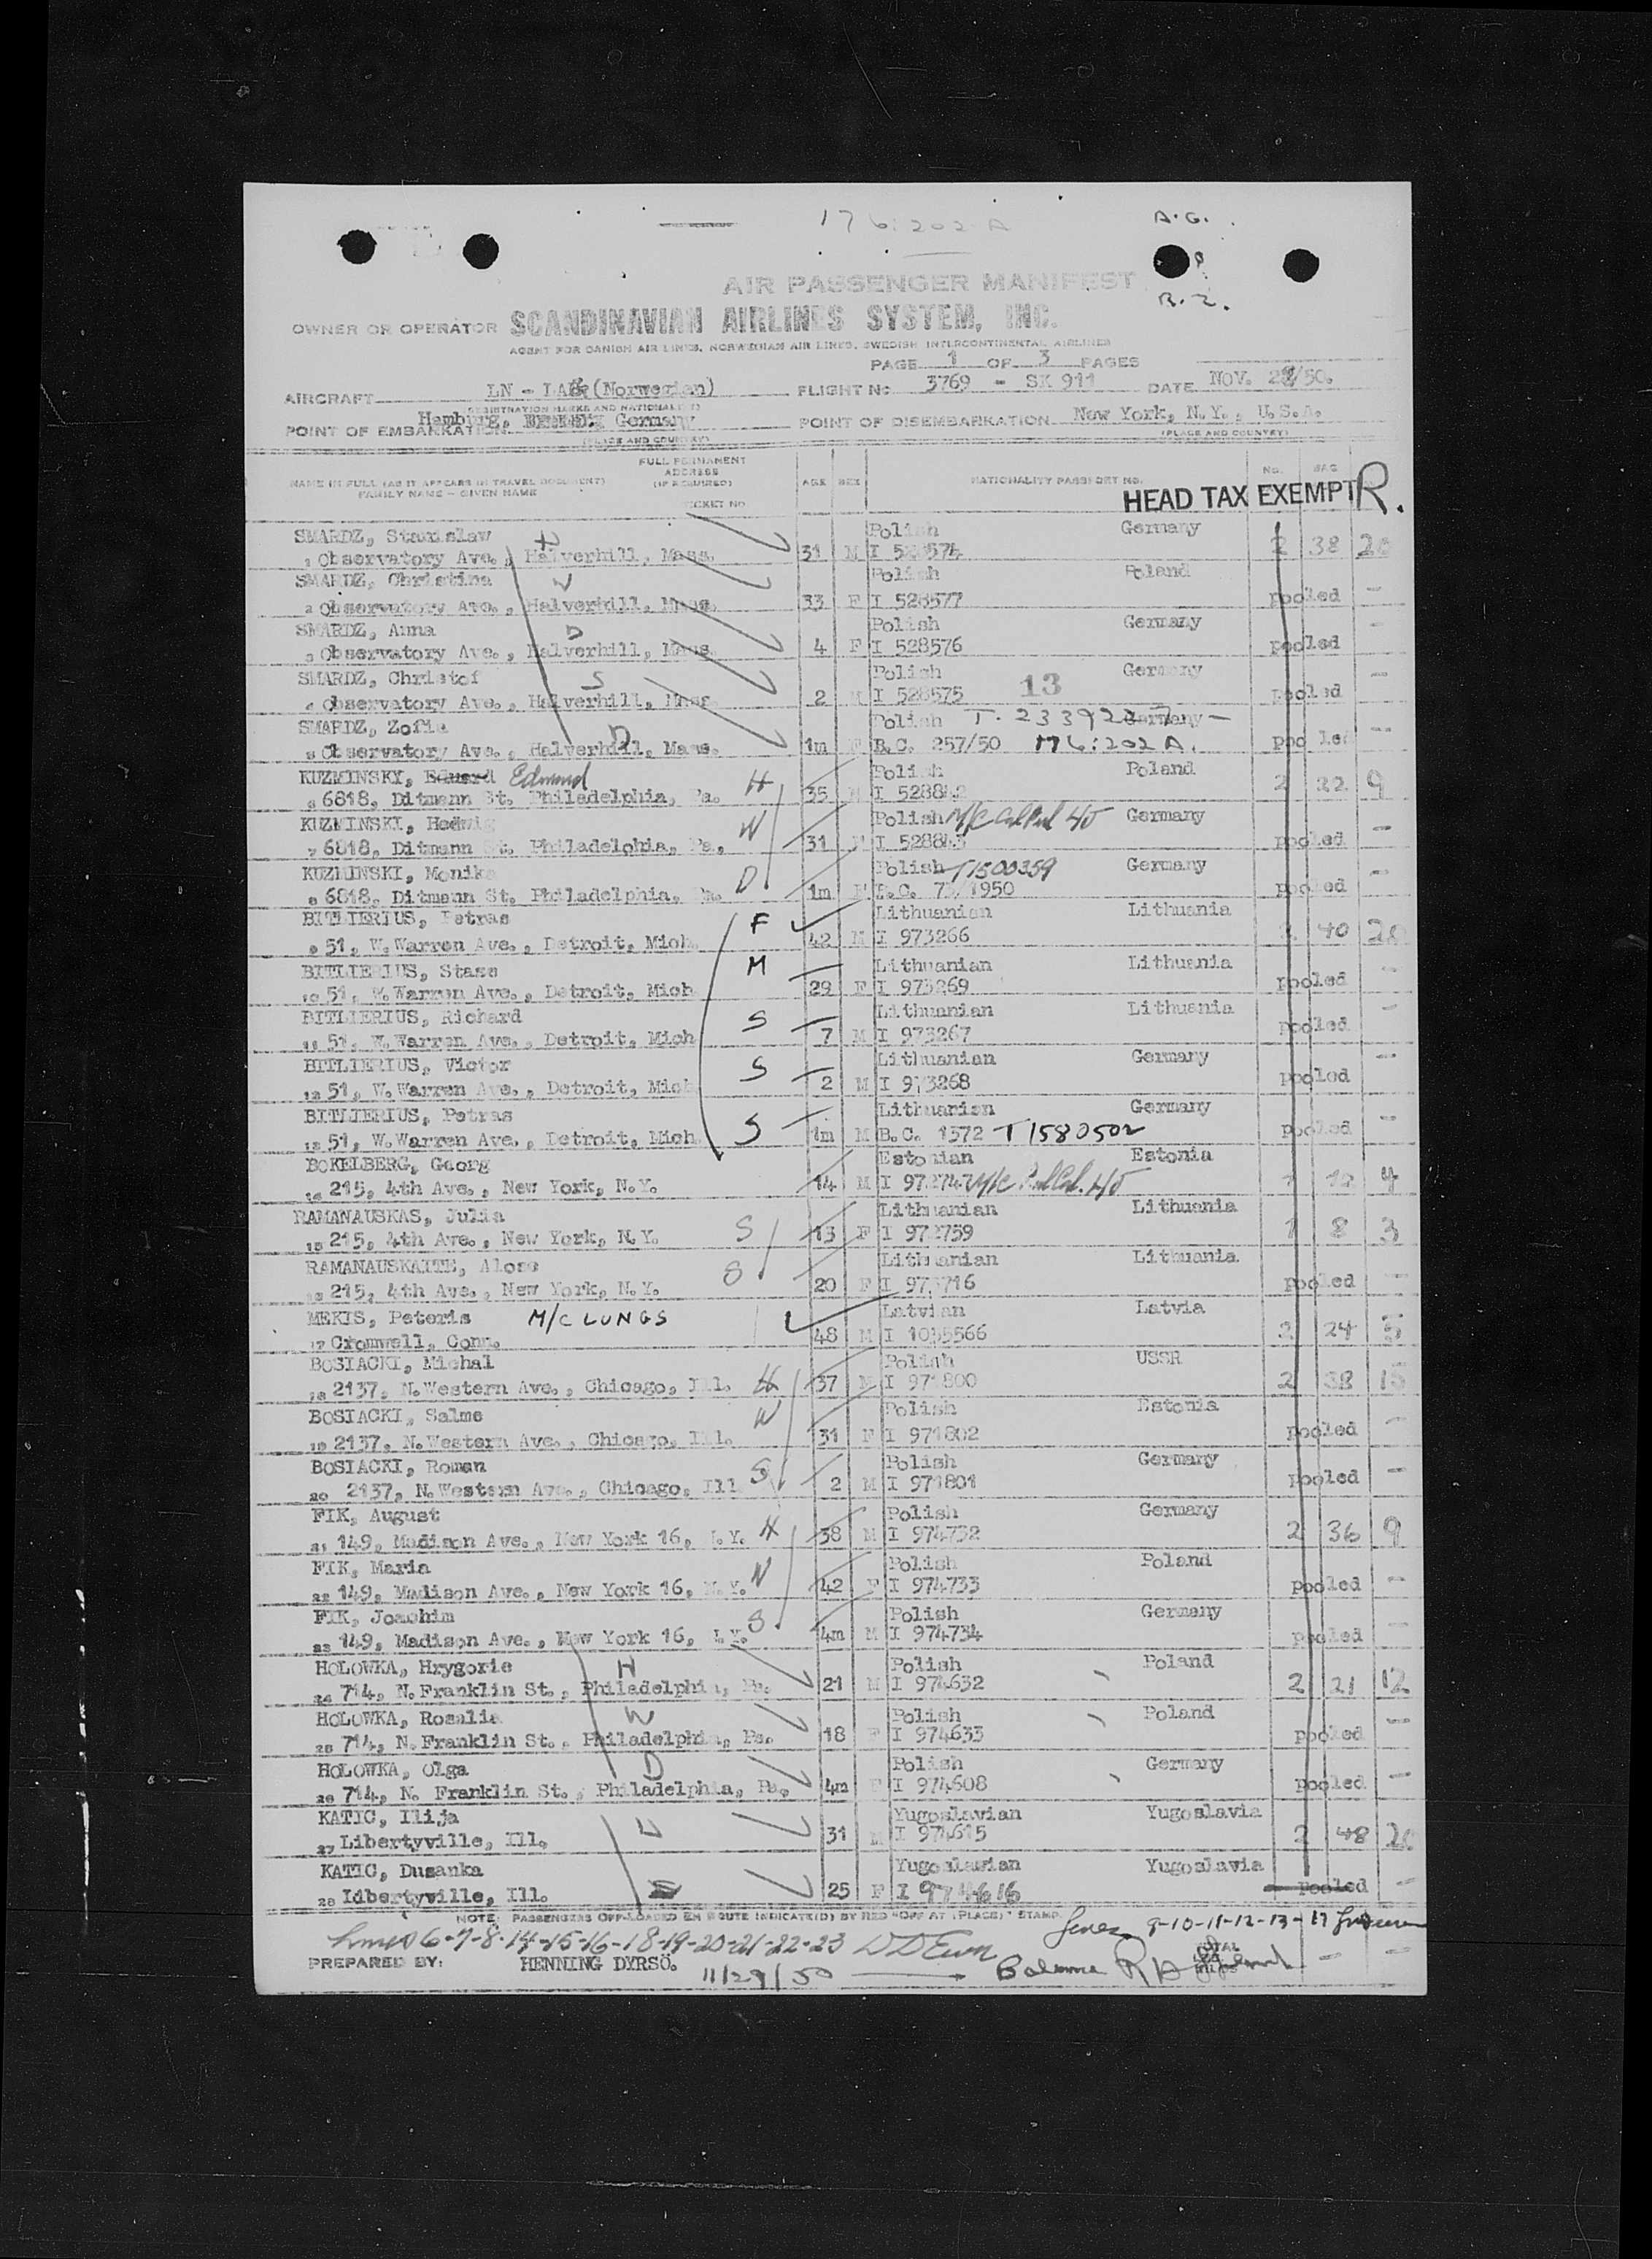 176:202 A
A.G.
R.Z.
AIR PASSENGER MANIFEST
OWNER OR OPERATOR SCANDINAVIAN AIRLINES SYSTEM, INC.
AGENT FOR DANISH AIR LINES, NORWEGIAN AIR LINES, SWEDISH INTERCONTINENTAL AIRLINES
PAGE 1 OF 3 PAGES
AIRCRAFT (Norwegian) FLIGHT No 3769 - SK 911 DATE NOV. /50.
(REGISTRATION MARKS AND NATIONALITY)
POINT OF EMBARKATION Hamburg, Germany POINT OF DISEMBARKATION New York, N.Y., U.S.A.
(PLACE AND COUNTRY) (PLACE AND COUNTRY)
NAME IN FULL (AS IT APPEARS IN TRAVEL DOCUMENT) FAMILY NAME - GIVEN NAME FULL PERMANENT ADDRESS (IF REQUIRED) AGE SEX NATIONALITY PASSPORT NO. No. BAG
TICKET NO HEAD TAX EXEMPT R.
SMARDZ, Stanislaw Polish Germany
1 Observatory Ave., Halverhill, Mass. 31 M I 528574 2 38 20
SMARDZ, Christina W Polish Poland
2 Observatory Ave., Halverhill, Mass. 33 F I 528577 pooled -
SMARDZ, Anna D Polish Germany
3 Observatory Ave., Halverhill, Mass. 4 F I 528576 pooled -
SMARDZ, Christof S Polish Germany
4 Observatory Ave., Halverhill, Mass. 2 M I 528575 13 pooled -
SMARDZ, Zofia Polish Germany
5 Observatory Ave., Halverhill, Mass. D 1m F B.C. 257/50 176:202 A. pooled -
KUZMINSKY, Eduard Edmund H Polish Poland
6 6818, Ditmann St. Philadelphia, Pa. 35 M 2 22 9
KUZMINSKI, Hedwig W Polish Germany
7 6818, Ditmann St. Philadelphia, Pa. 31 pooled -
KUZMINSKI, Monika D Polish T1500359 Germany
8 6818, Ditmann St. Philadelphia, Pa. 1m B.C. pooled -
BITLIERIUS, Petras F Lithuanian Lithuania
9 51, W. Warren Ave., Detroit, Mich. 42 M I 973266 2 40 20
BITLIERIUS, Stase M Lithuanian Lithuania
10 51, W. Warren Ave., Detroit, Mich 29 F I 973269 pooled -
BITLIERIUS, Richard S Lithuanian Lithuania
11 51, W. Warren Ave., Detroit, Mich 7 M I 973267 pooled -
BITLIERIUS, Victor S Lithuanian Germany
12 51, W. Warren Ave., Detroit, Mich 2 M I 973268 pooled -
BITLIERIUS, Petras S Lithuanian Germany
13 51, W. Warren Ave., Detroit, Mich. 1m M B.C. 1372 T1580502 pooled -
BOKELBERG, Georg Estonian Estonia
14 215, 4th Ave., New York, N.Y. 14 M 4
RAMANAUSKAS, Julia Lithuanian Lithuania
15 215, 4th Ave., New York, N.Y. S 13 F I 972759 1 8 3
RAMANAUSKAITE, Alose S Lithuanian Lithuania
16 215, 4th Ave., New York, N.Y. 20 F pooled -
MEKIS, Peteris M/C LUNGS Latvian Latvia
17 Cromwell, Conn. 48 M I 1035566 2 24 5
BOSIACKI, Michal Polish USSR
18 2137, N. Western Ave., Chicago, Ill. H 37 M I 971800 2 38 15
BOSIACKI, Salme W Polish Estonia
19 2137, N. Western Ave., Chicago, Ill. 31 F I 971802 pooled -
BOSIACKI, Roman S Polish Germany
20 2137, N. Western Ave., Chicago, Ill 2 M I 971801 pooled -
FIK, August Polish Germany
21 149, Madison Ave., New York 16, N.Y. H 38 M I 974732 2 36 9
FIK, Maria W Polish Poland
22 149, Madison Ave., New York 16, N.Y. 42 F I 974733 pooled -
FIK, Joachim S Polish Germany
23 149, Madison Ave., New York 16, N.Y. 4m M I 974734 pooled -
HOLOWKA, Hrygorie H Polish Poland
24 714, N. Franklin St., Philadelphia, Pa. 21 M I 974632 2 21 12
HOLOWKA, Rosalia W Polish Poland
25 714, N. Franklin St., Philadelphia, Pa. 18 F I 974633 pooled -
HOLOWKA, Olga D Polish Germany
26 714, N. Franklin St., Philadelphia, Pa. 4m F I 974608 pooled -
KATIC, Ilija Yugoslavian Yugoslavia
27 Libertyville, Ill. 31 M I 974615 2 48 20
KATIC, Dusanka Yugoslavian Yugoslavia
28 Libertyville, Ill. 25 F I 974616 pooled -
NOTE: PASSENGERS OFF-LOADED EN ROUTE INDICATE(D) BY RED "OFF AT (PLACE)" STAMP.
9-10-11-12-13-17
6-7-8-14-15-16-18-19-20-21-22-23
PREPARED BY: HENNING DYRSÖ. 11/29/50 Balance TOTAL